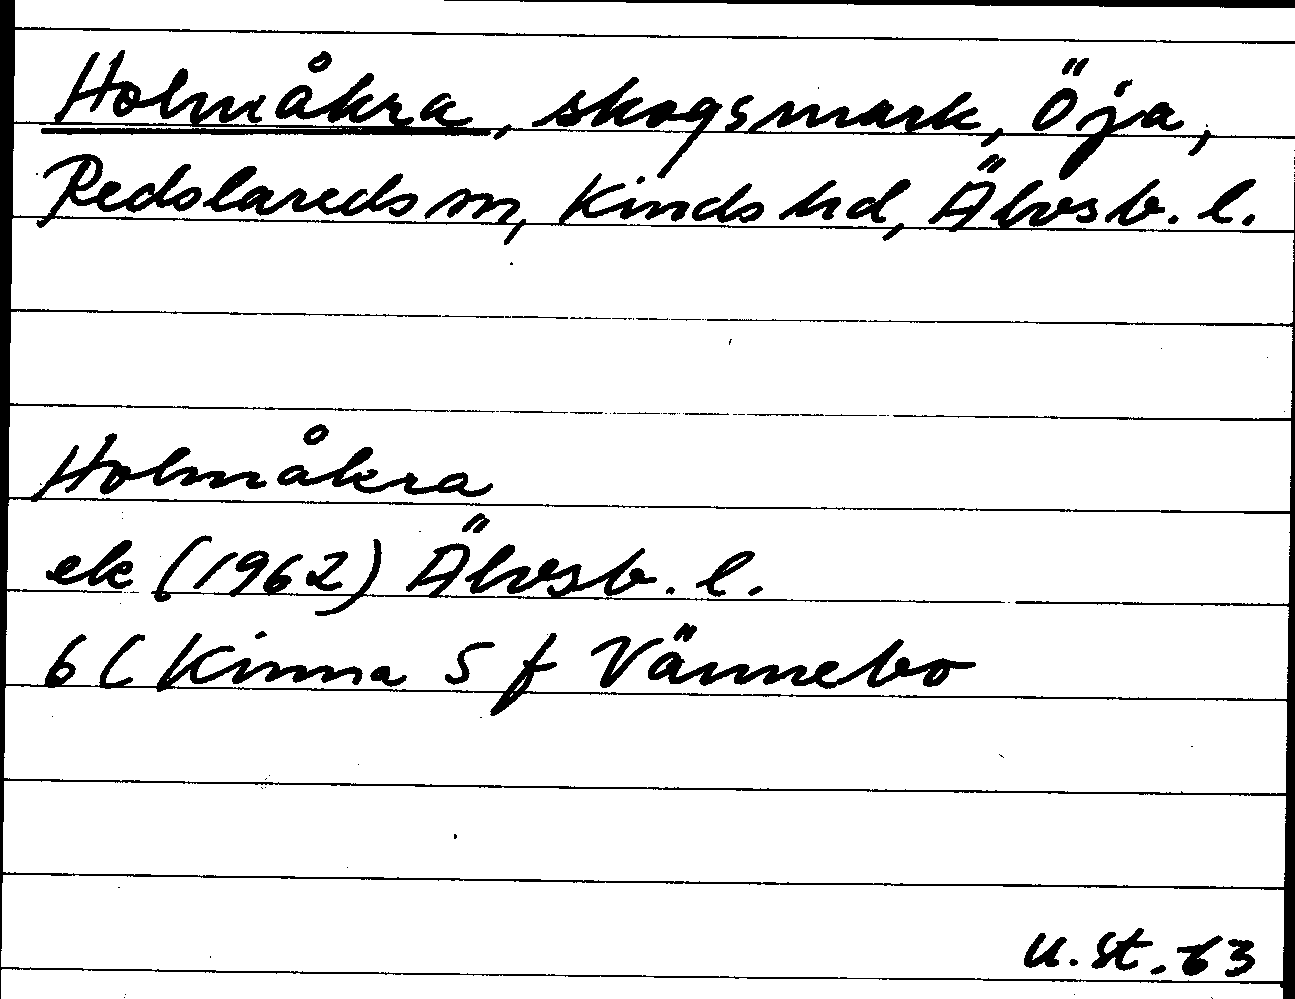 Holmåkra, skogsmark, Öja,
Redslareds sn, Kinds hd, Älvsb. l.
Holmåkra
ek (1962) Älvsb. l.
6 C Kinna S f Vännebo
U. St. 63